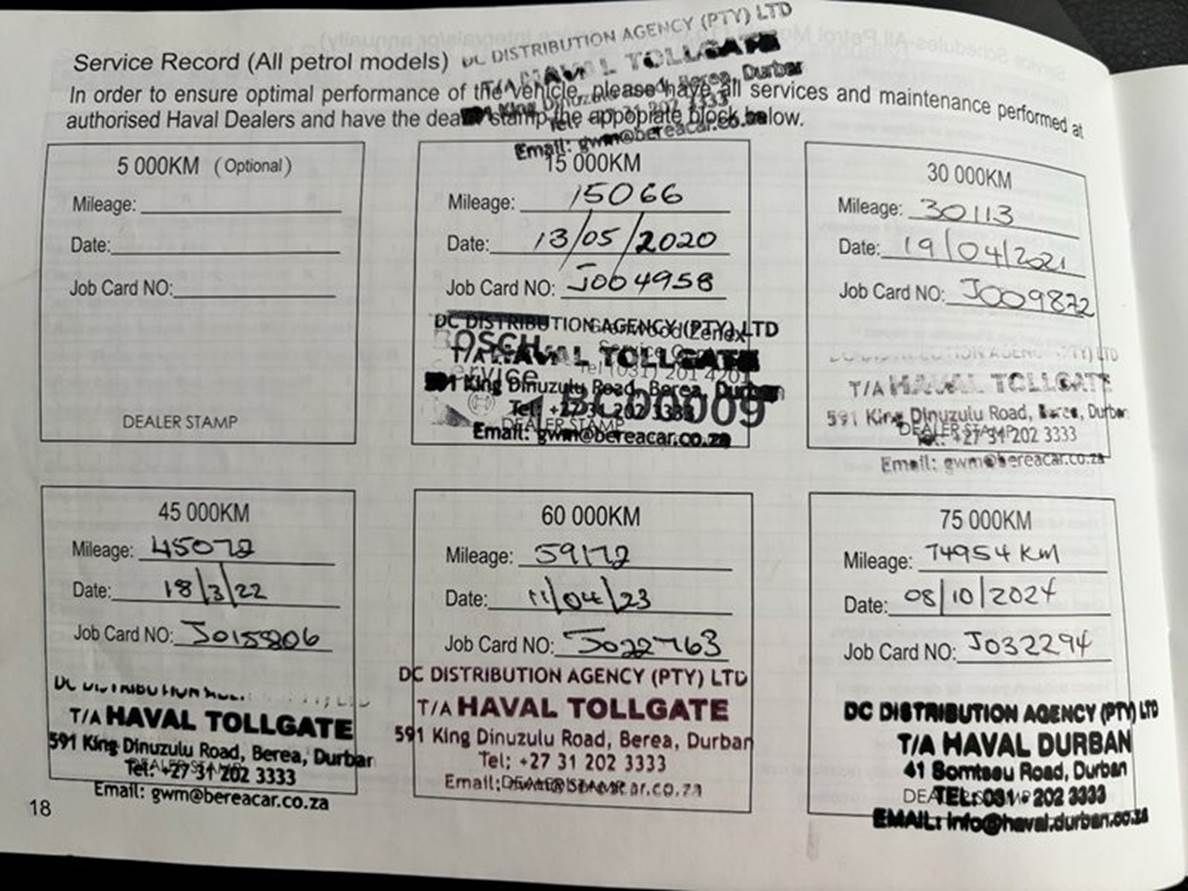 DC DISTRIBUTION AGENCY (PTY) LTD
T/A HAVAL TOLLGATE
Service Record (All petrol models)
In order to ensure optimal performance of the vehicle, please have all services and maintenance performed at
authorised Haval Dealers and have the dealer stamp the appopiate block below.
King Dinuzulu Road, Berea, Durban
Tel: +27 31 202 3333
Email: gwm@bereacar.co.za
5 000KM (Optional)
Mileage:
Date:
Job Card NO:
DEALER STAMP
15 000KM
Mileage: 15066
Date: 13/05/2020
Job Card NO: J004958
DC DISTRIBUTION AGENCY (PTY) LTD
T/A HAVAL TOLLGATE
King Dinuzulu Road, Berea, Durban
Tel: +27 31 202 3333
Email: gwm@bereacar.co.za
BOSCH
Service
Tel (031) 201 4201
BC00009
DEALER STAMP
30 000KM
Mileage: 30113
Date: 19/04/2021
Job Card NO: J009872
DC DISTRIBUTION AGENCY (PTY) LTD
T/A HAVAL TOLLGATE
591 King Dinuzulu Road, Berea, Durban
DEALER STAMP
Tel: +27 31 202 3333
Email: gwm@bereacar.co.za
45 000KM
Mileage: 45072
Date: 18/3/22
Job Card NO: J0155806
DC DISTRIBUTION
T/A HAVAL TOLLGATE
591 King Dinuzulu Road, Berea, Durban
DEALER STAMP
Tel: +27 31 202 3333
Email: gwm@bereacar.co.za
60 000KM
Mileage: 59172
Date: 11/04/23
Job Card NO: J022763
DC DISTRIBUTION AGENCY (PTY) LTD
T/A HAVAL TOLLGATE
591 King Dinuzulu Road, Berea, Durban
Tel: +27 31 202 3333
Email: gwm@bereacar.co.za
DEALER STAMP
75 000KM
Mileage: 74954 KM
Date: 08/10/2024
Job Card NO: J032294
DC DISTRIBUTION AGENCY (PTY) LTD
T/A HAVAL DURBAN
41 Somtseu Road, Durban
DEALER STAMP
TEL: 031 - 202 3333
EMAIL: info@haval.durban.co.za
18